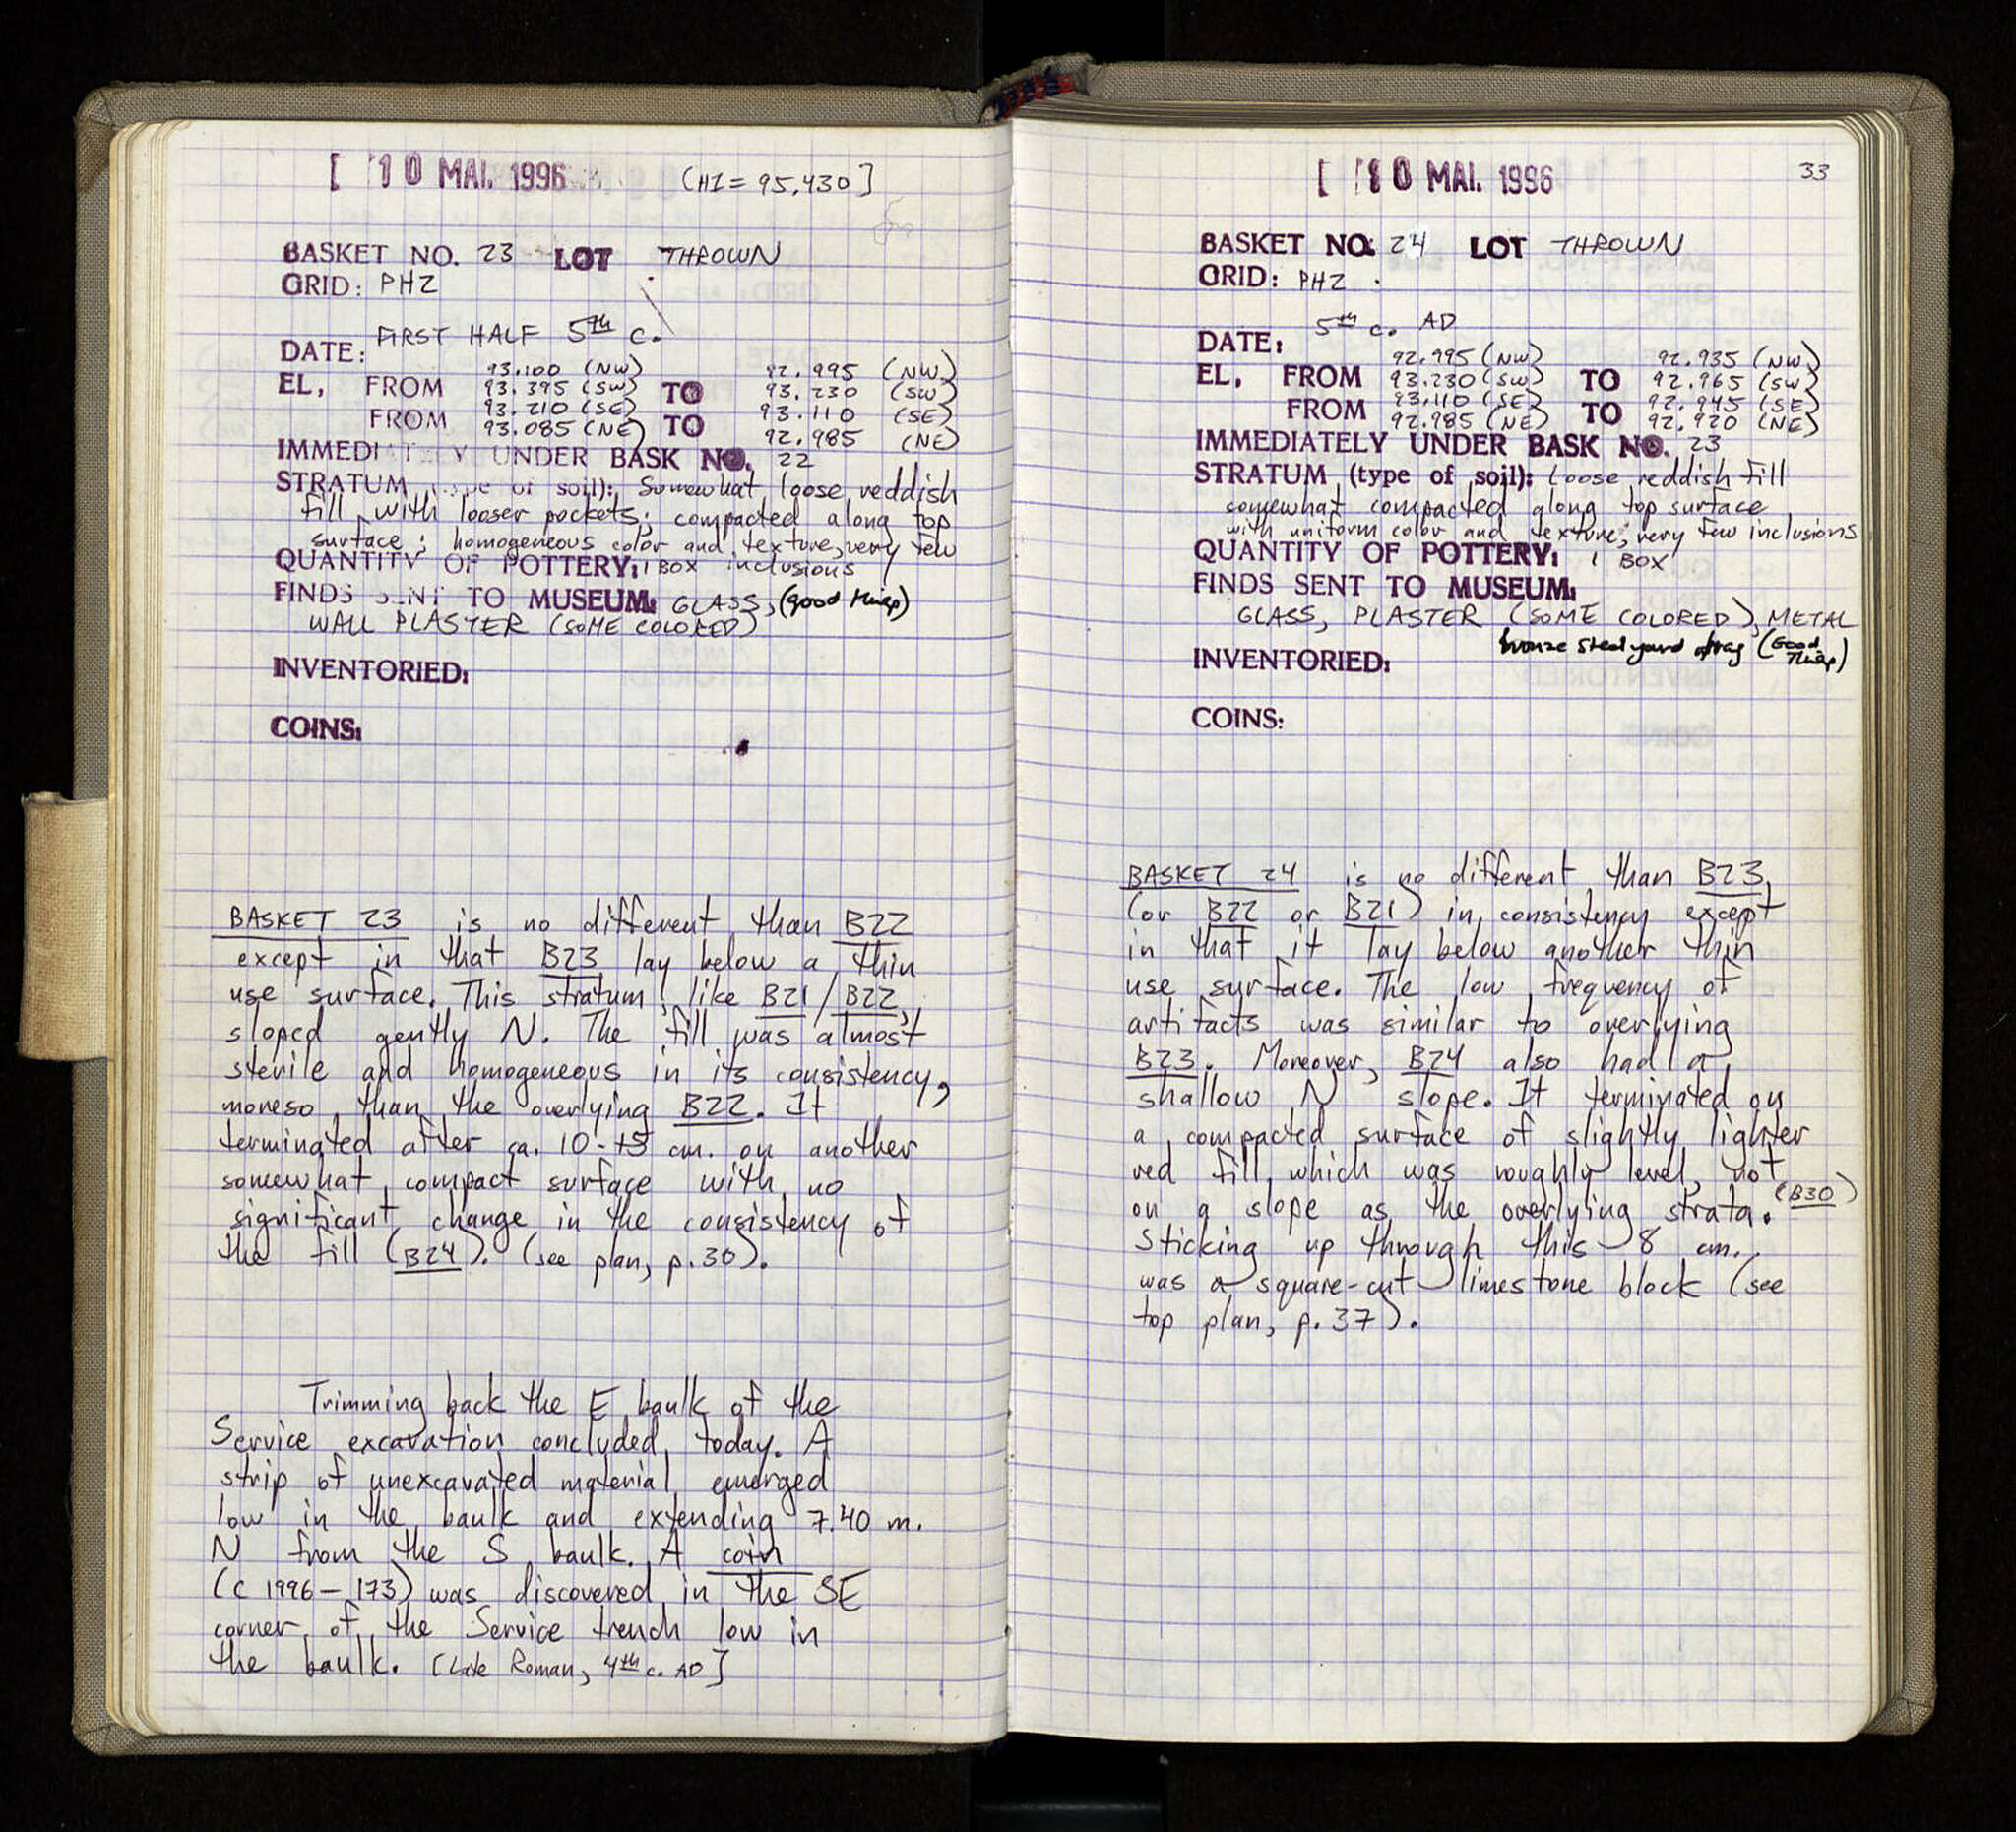 [ 10 MAI. 1996 (HI = 95,430]
BASKET NO. 23 LOT THROWN
GRID: PHZ
DATE: FIRST HALF 5th c.
93.100 (NW) 92.995 (NW)
EL, FROM 93.395 (SW) TO 93.230 (SW)
93.210 (SE) 93.110 (SE)
FROM 93.085 (NE) TO 92.985 (NE)
IMMEDIATELY UNDER BASK NO. 22
STRATUM (type of soil): Somewhat loose reddish
fill with looser pockets; compacted along top
surface; homogeneous color and texture, very few
QUANTITY OF POTTERY: 1 BOX inclusions
FINDS SENT TO MUSEUM: GLASS, (good things)
WALL PLASTER (SOME COLORED)
INVENTORIED:
COINS:
BASKET 23 is no different than B22
except in that B23 lay below a thin
use surface. This stratum, like B21/B22,
sloped gently N. The fill was almost
sterile and homogeneous in its consistency,
moreso than the overlying B22. It
terminated after ca. 10-15 cm. on another
somewhat compact surface with no
significant change in the consistency of
the fill (B24). (see plan, p.30).
Trimming back the E baulk of the
Service excavation concluded today. A
strip of unexcavated material emerged
low in the baulk and extending 7.40 m.
N from the S baulk. A coin
(C 1996-173) was discovered in the SE
corner of the Service trench low in
the baulk. [Late Roman, 4th c. AD]
[ 10 MAI. 1996 33
BASKET NO. 24 LOT THROWN
GRID: PHZ
DATE: 5th c. AD
92.995 (NW) 92.935 (NW)
EL, FROM 93.230 (SW) TO 92.965 (SW)
93.110 (SE) 92.945 (SE)
FROM 92.985 (NE) TO 92.920 (NE)
IMMEDIATELY UNDER BASK NO. 23
STRATUM (type of soil): Loose reddish fill
somewhat compacted along top surface
with uniform color and texture; very few inclusions
QUANTITY OF POTTERY: 1 BOX
FINDS SENT TO MUSEUM:
GLASS, PLASTER (SOME COLORED), METAL
bronze steelyard frag (Good
INVENTORIED: Things)
COINS:
BASKET 24 is no different than B23
(or B22 or B21) in consistency except
in that it lay below another thin
use surface. The low frequency of
artifacts was similar to overlying
B23. Moreover, B24 also had a
shallow N slope. It terminated on
a compacted surface of slightly lighter
red fill which was roughly level, not
on a slope as the overlying strata. (B30)
Sticking up through this 8 cm.
was a square-cut limestone block (see
top plan, p.37).